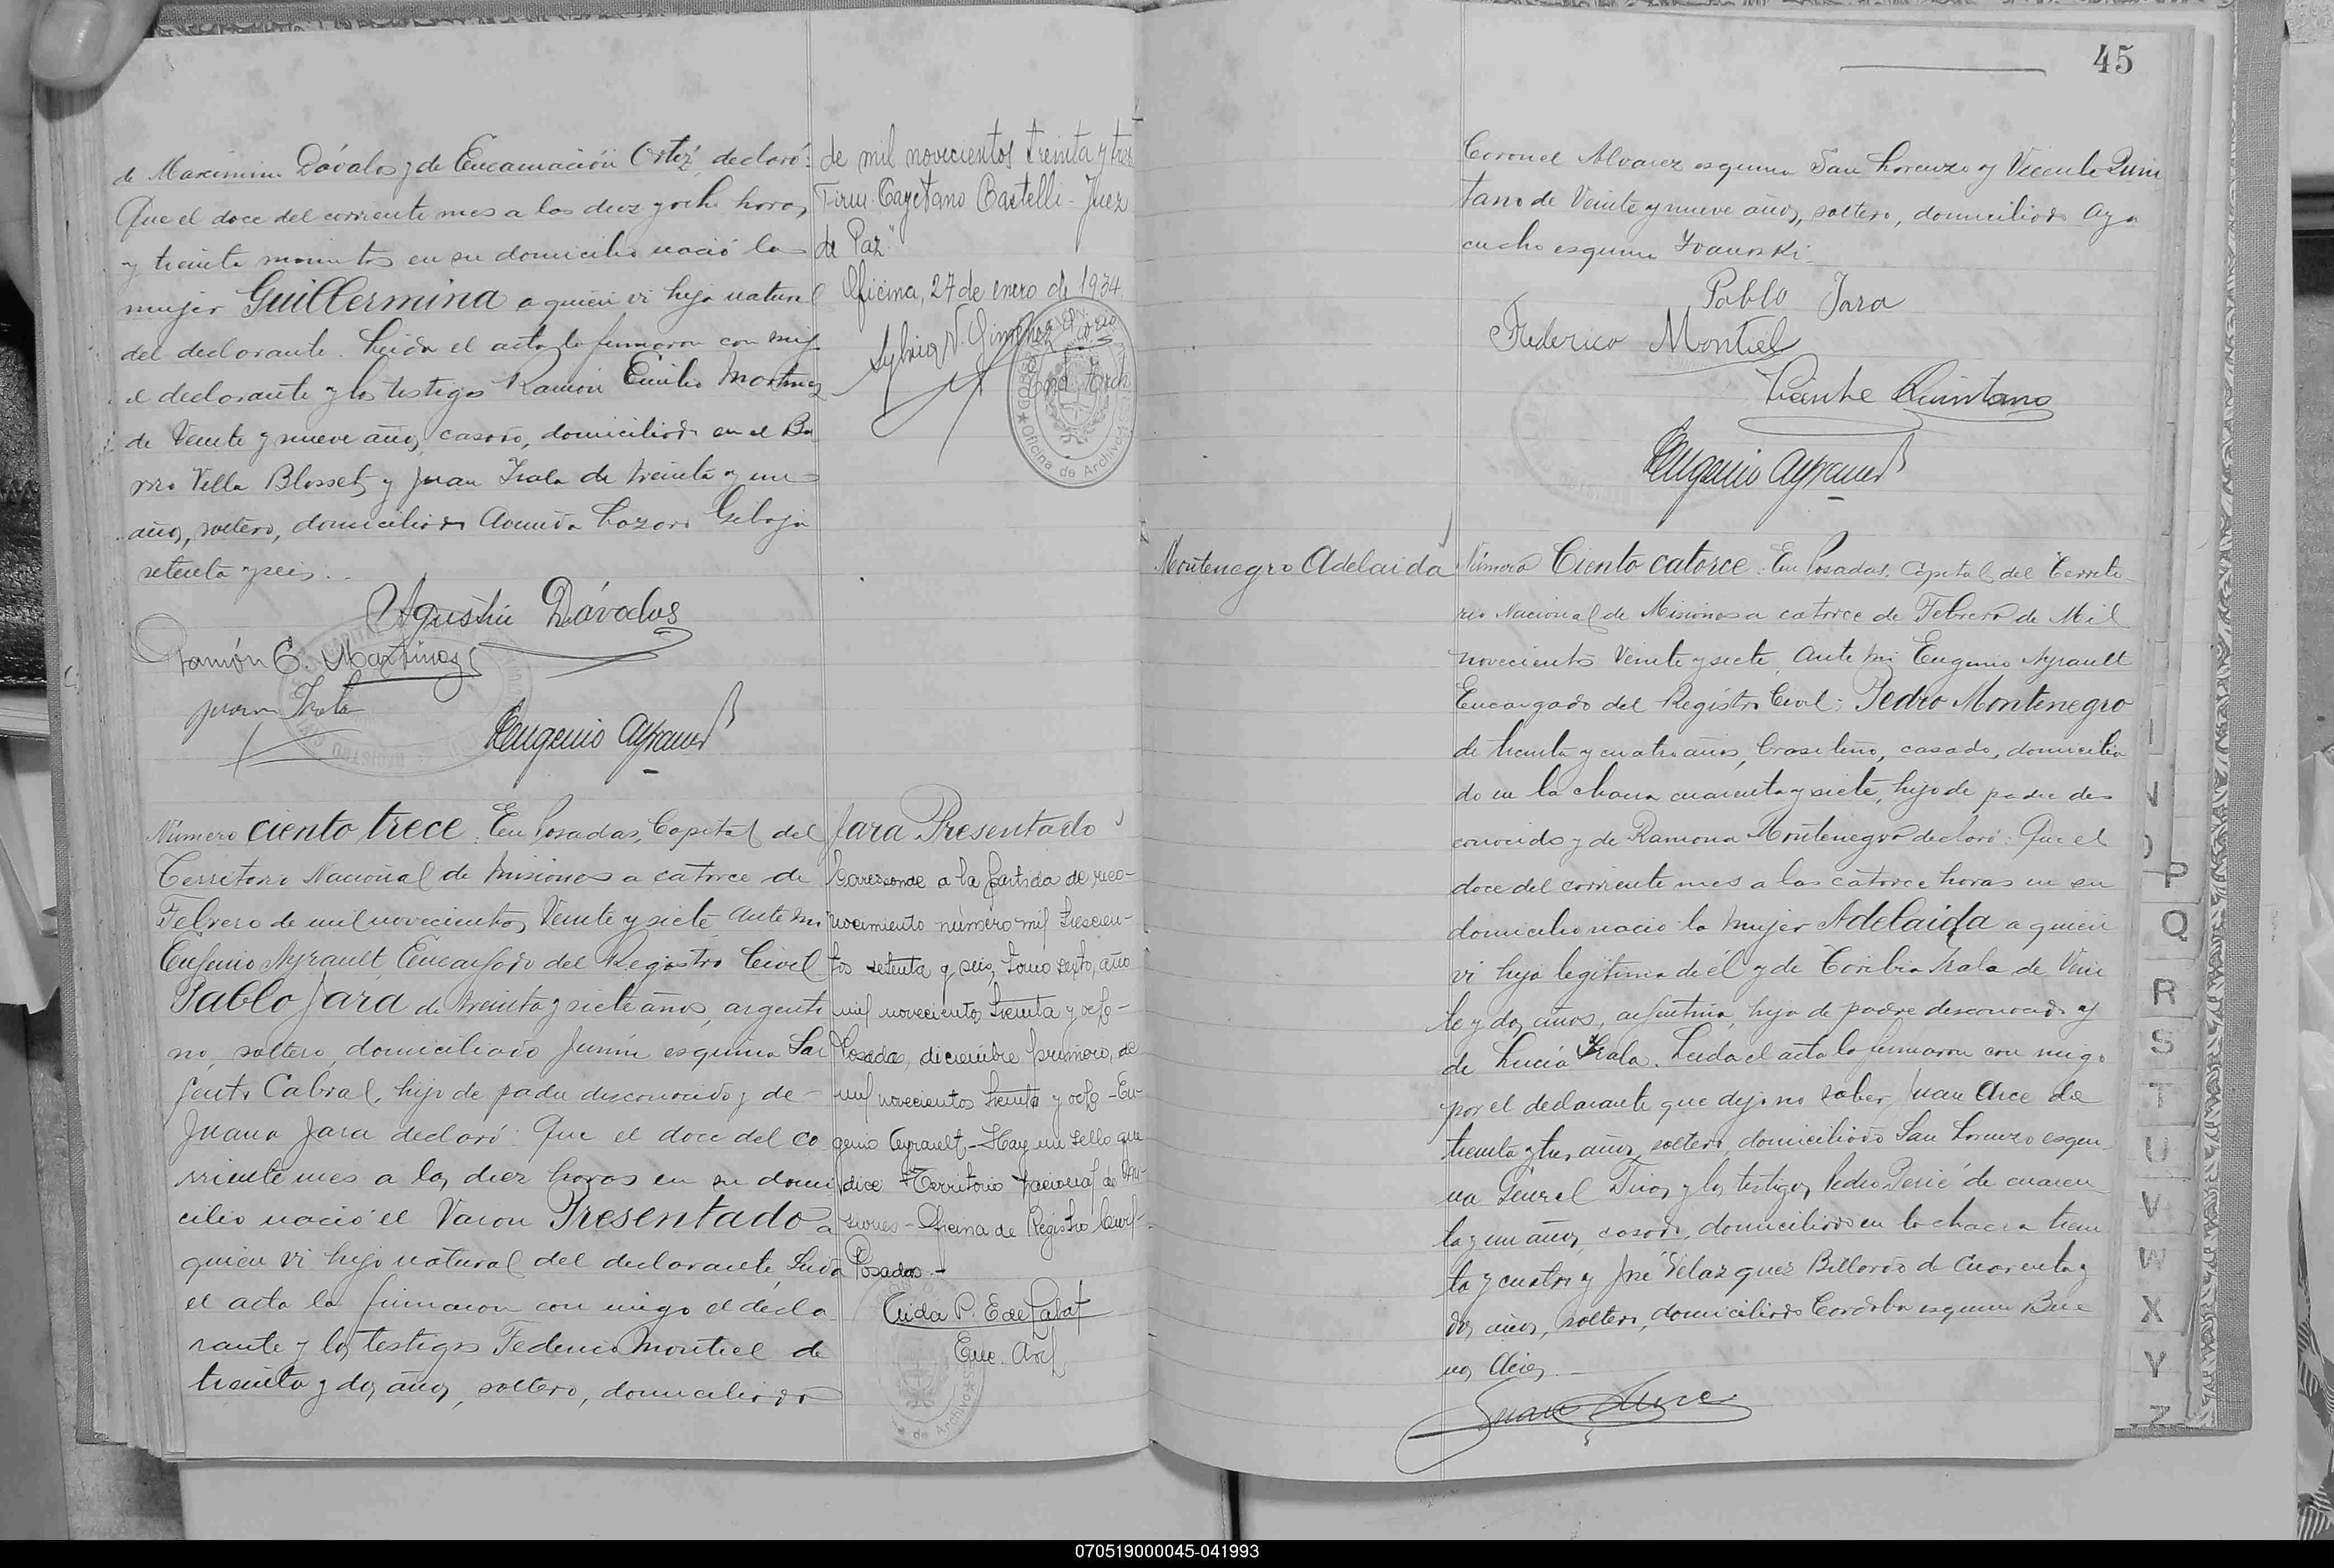 de Maximino Dávalos y de Encarnación Ortiz, declaró:
Que el doce del corriente mes a las diez y ocho horas
y treinta minutos en su domicilio nació la
mujer Guillermina a quien vi hija natural
del declarante. Leida el acta la firmaron con migo
el declarante y los testigos Ramón Emilio Martinez
de Veinte y nueve años, casado, domiciliado en el Ba
rrio Villa Blosset, y Juan Irala de treinta y un
años, soltero, domiciliado Avenida Lazaro Gibaja
setenta y seis.
Agustin Dávalos
Ramón E. Martinez
Juan Irala
Eugenio Ayrault
de mil novecientos treinta y tres
Firm. Cayetano Castelli - Juez
de Paz"
Oficina, 27 de enero de 1934.
Sylvia N. Gimenez
Enc. Arch.
Oficina de Archivo
Número ciento trece. En Posadas, Capital del
Territorio Nacional de Misiones a catorce de
Febrero de mil novecientos Veinte y siete ante mi
Eugenio Ayrault, Encargado del Registro Civil
Pablo Jara de treinta y siete años, argenti
no, soltero, domiciliado Junín esquina Sar
gento Cabral, hijo de padre desconocido y de
Juana Jara declaró: Que el doce del co
rriente mes a las diez horas en su domi
cilio nació el Varon Presentado a
quien vi hijo natural del declarante, Leida
el acta la firmaron con migo el decla
rante y los testigos Federico Montiel de
treinta y dos años, soltero, domiciliado
Jara Presentado
Corresponde a la partida de reco-
nocimiento número mil trescien-
tos setenta y seis, tomo sexto, año
mil novecientos treinta y ocho-
Posadas, diciembre primero, de
mil novecientos treinta y ocho - Eu-
genio Ayrault - Hay un sello que
dice: Territorio Nacional de Mi-
siones - Oficina de Registro Civil-
Posadas.-
Enc. Arch
de Archivo
45
Coronel Alvarez esquina San Lorenzo y Vicente Quin
tano de Veinte y nueve años, soltero, domiciliado Aya
cucho esquina Ivanoski.
Pablo Jara
Federico Montiel
Vicente Quintano
Eugenio Ayrault
Montenegro Adelaida
Número Ciento catorce. En Posadas, Capital del Territo
rio Nacional de Misiones a catorce de Febrero de Mil
novecientos Veinte y siete, Ante mi Eugenio Ayrault
Encargado del Registro Civil: Pedro Montenegro
de treinta y cuatro años, brasileño, casado, domicilia
do en la chacra cuarenta y siete, hijo de padre des
conocido y de Ramona Montenegro declaró: Que el
doce del corriente mes a las catorce horas en su
domicilio nació la mujer Adelaida a quien
vi hija legitima de él y de Toribia Irala de Vein
te y dos años, argentina, hija de padre desconocido y
de Lucía Irala. Leida el acta la firmaron con migo
por el declarante que dijo no saber, Juan Arce de
treinta y tres años, soltero, domiciliado San Lorenzo esqui
na General Frias, y los testigos Pedro de cuaren
ta y un años, casado, domiciliado en la chacra trein
ta y cuatro y José Velazquez Billordo de Cuarenta y
dos años, soltero, domiciliado Cordoba esquina Bue
nos Aires.
Juan Arce
I
N
P
Q
R
S
T
U
V
W
X
Y
Z
070519000045-041993